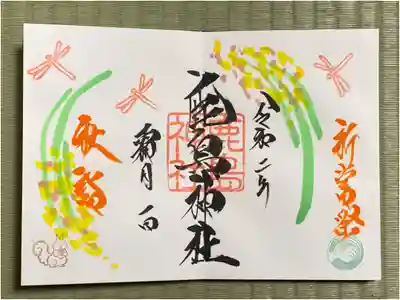 新嘗祭
令和二年
鹿島神社
鹿島
神社
霜月 一日
秋詣